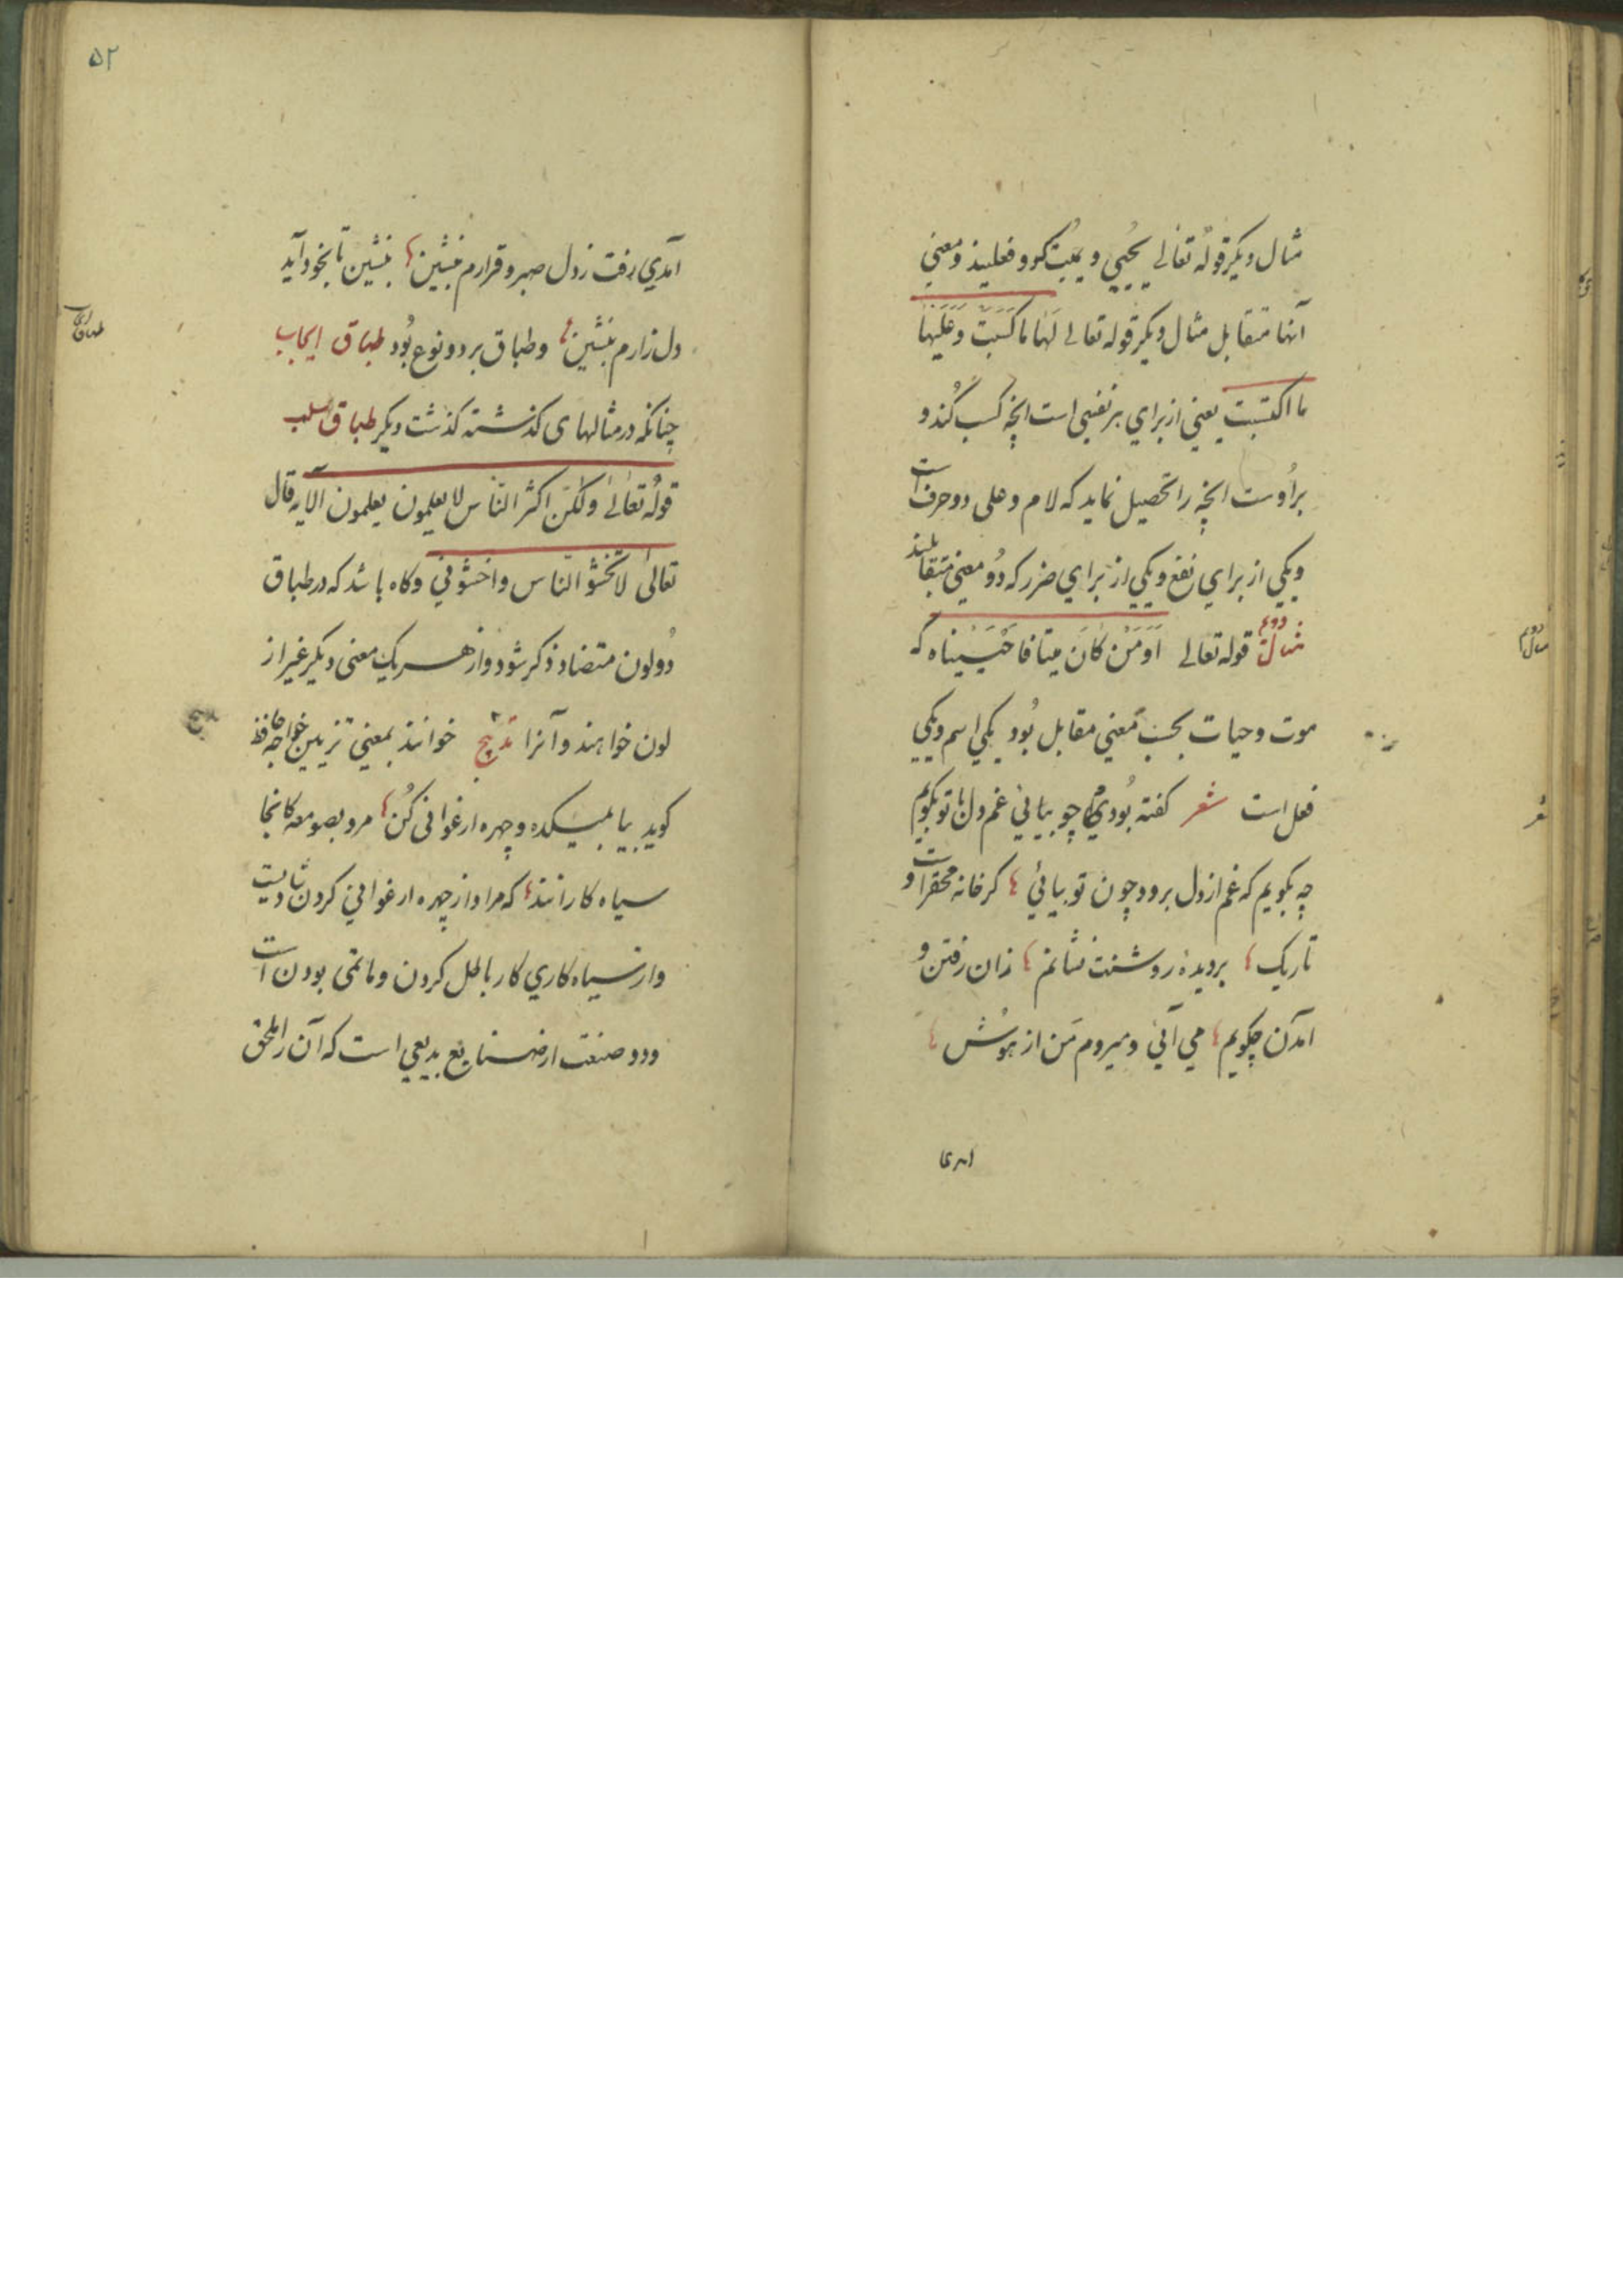 مثال دیکر قولُه تعَالی یُحیِی و یُمِیت کہ دو فعلیند و معنی
آنها متقابل مثال دیکر قوله تعالی لَهَا مَا کَسَبَتْ وَعَلَیْهَا
ما اکتسبت یعنی از برای هر نفسی است انچه کسب کُند و
بر اُوست انچه را تحصیل نماید که لام و علی دو حرف است
و یکی از برای نفع و یکی از برای ضرر که دُو معنی متقابلیند
مثال دوم قوله تعالی اَوَمَنْ کَانَ میتًا فَاَحْیَیْنَاه که
موت و حیات بحسب معنی مقابل بُود یکی اسم و یکی
فعل است شعر کفته بُودی چو بیائی غم دل با تو بکویم
چه بکویم که غم از دل برود چون تو بیائی کر خانه محقر است و
تاریک بر دیدهٔ روشنت نشانم زان رفتن و
آمدن چکویم می آئی و میروم مَن از هوُش
امدی
۵۲
آمدی رفت ز دل صبر و قرارم بنشین بنشین تا بخود آید
دل زارم بنشین و طباق بر دو نوع بُود طباق ایجاب
چنانکه در مثالهای کذشته کذشت دیکر طباق سلب
قولُه تعَالیٰ ولٰکنّ اکثر النّاس لا یعلمون یعلمون الآیه قال
تعالیٰ لا تخشوُ النّاس واخشوُنی و کاه باشد که در طباق
دُو لون متضاد ذکر شود و از هر یک معنی دیکر غیر از
لون خواهند و آنرا تدبیج خوانند بمعنی تزیین خواجه حافظ
کوید بیا بمیکده و چهره ارغوانی کُن مرو بصومعه کانجا
سیاه کارانند که مراد از چهره ارغوانی کردن شادیست
و از سیاه کاری کار باطل کردن و ماتمی بودن است
و دو صنعت از صنایع بدیعی است که آن را ملحق